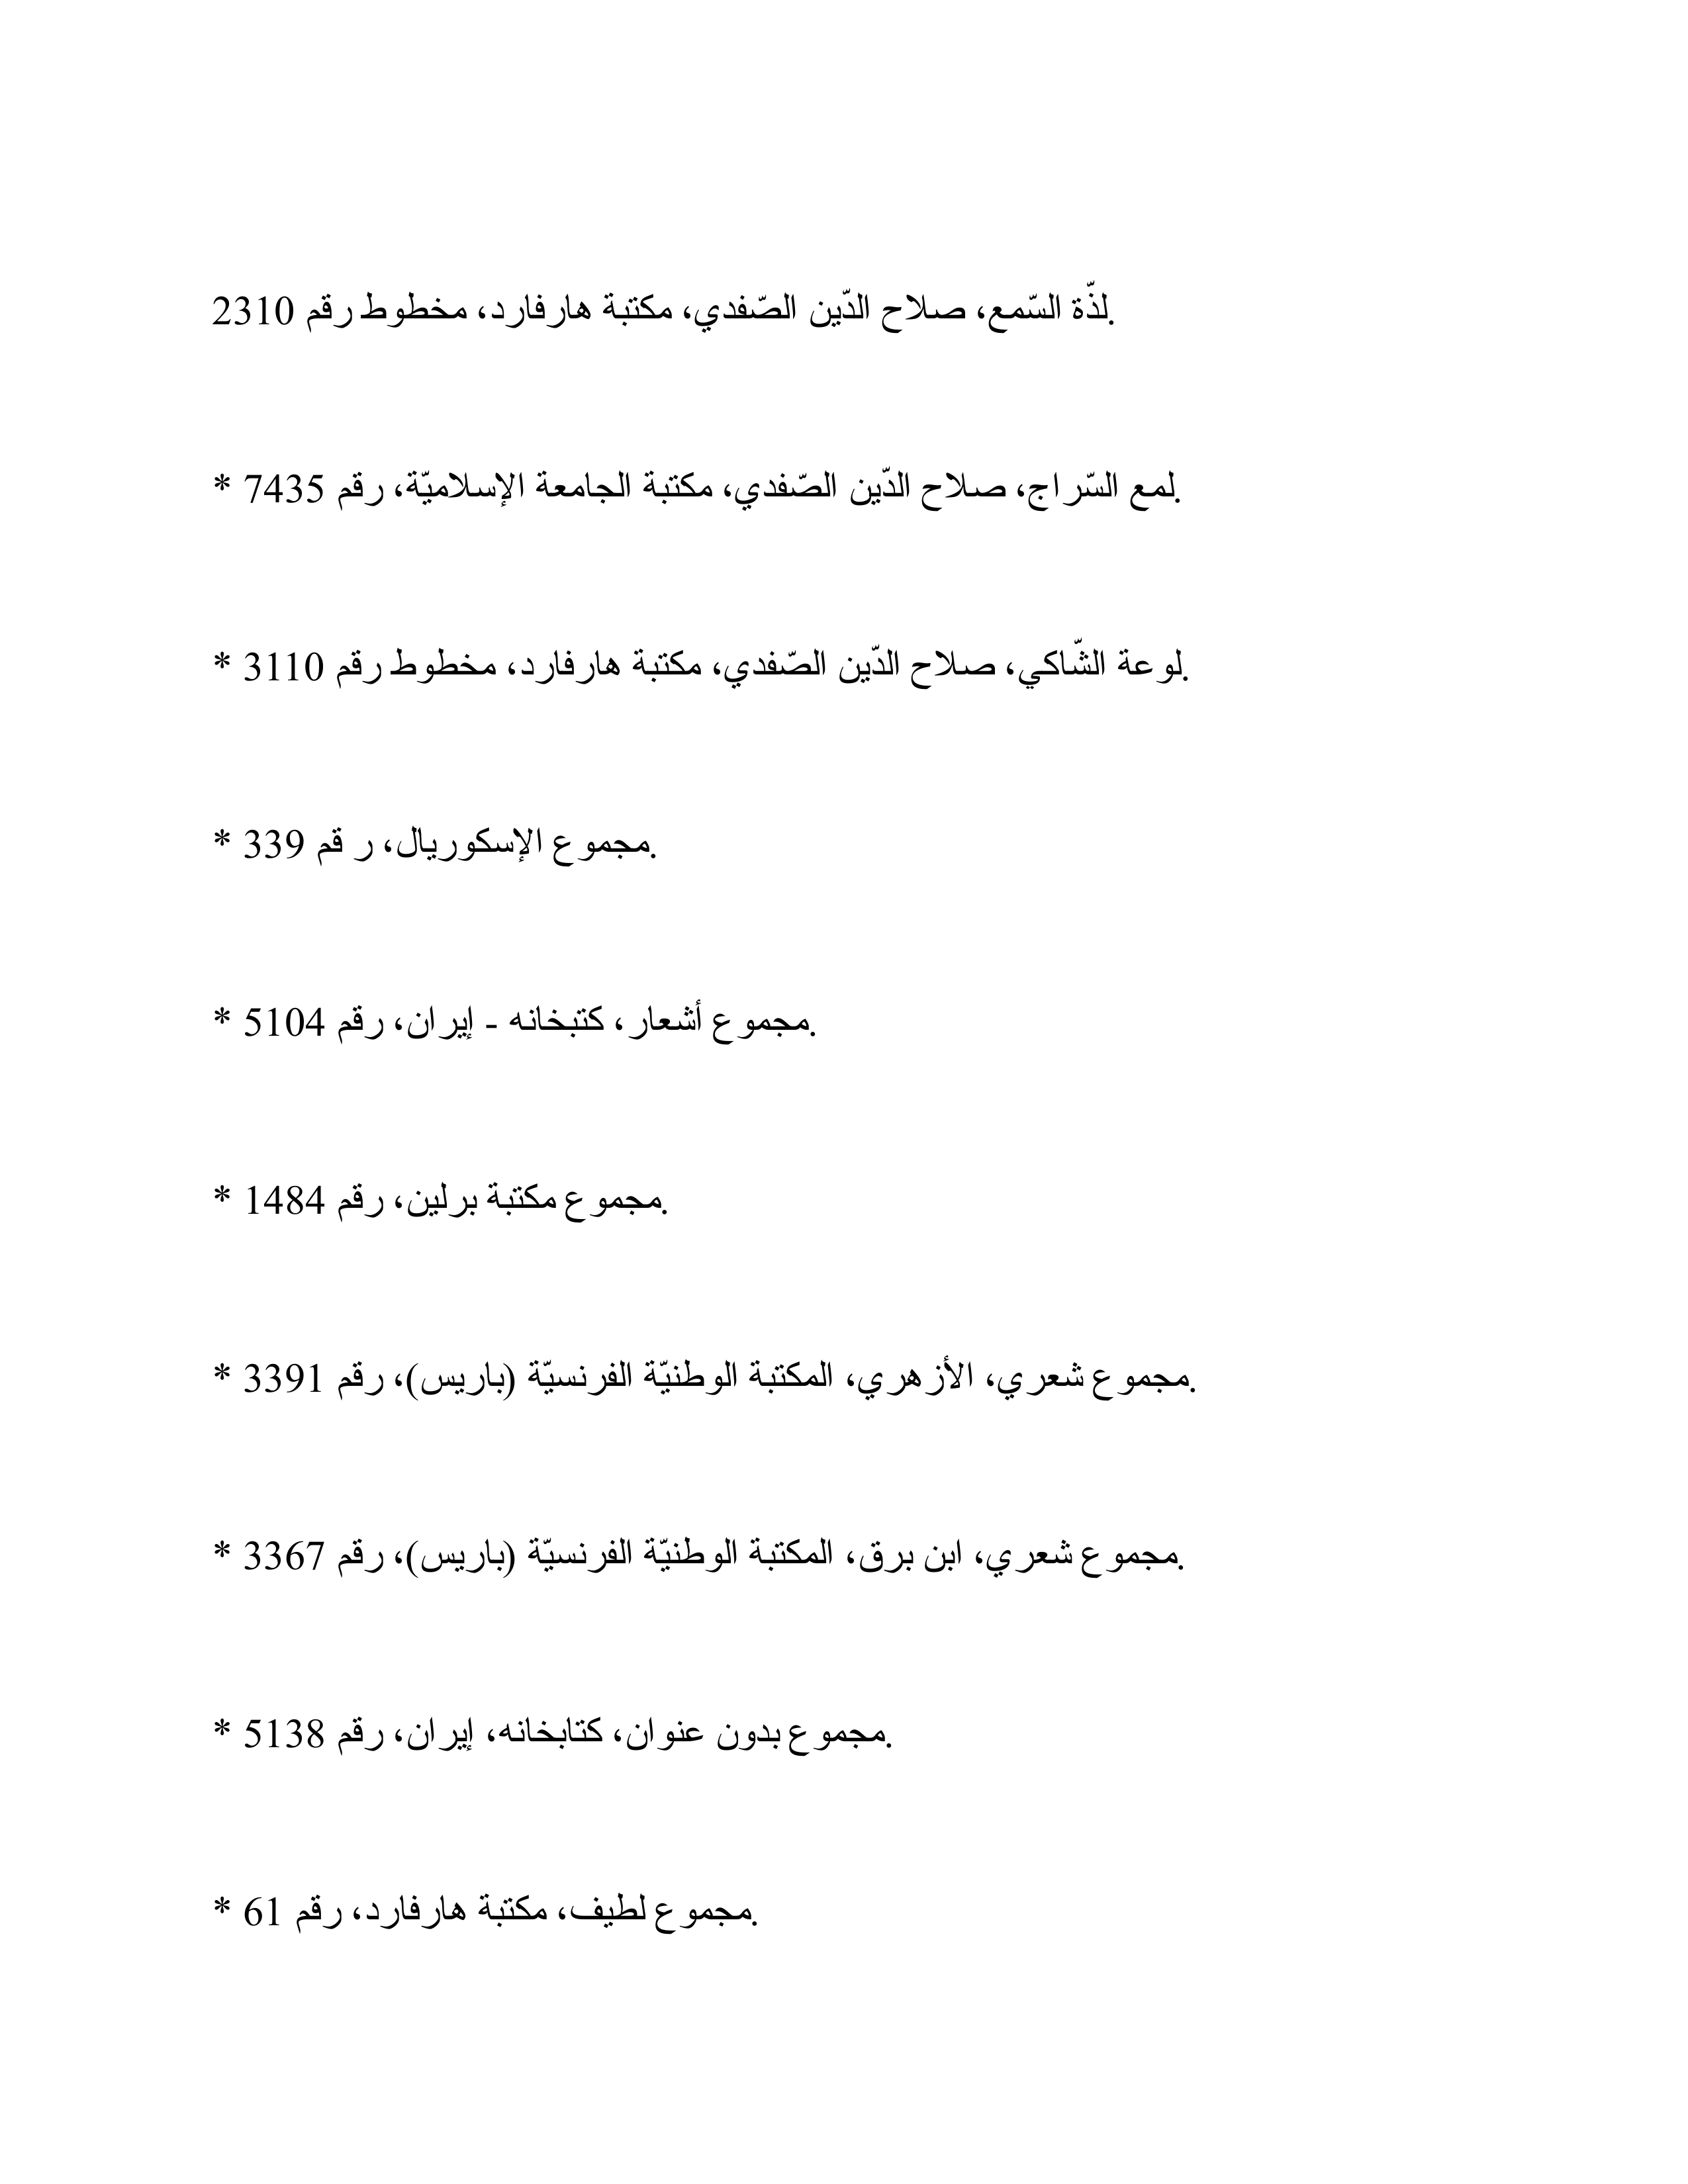 لذّة السّمع، صلاح الدّين الصّفدي، مكتبة هارفارد، مخطوط رقم 2310.
* لمع السّراج، صلاح الدّين الصّفدي، مكتبة الجامعة الإسلاميّة، رقم 7435.
* لوعة الشّاكي، صلاح الدّين الصّفدي، مكتبة هارفارد، مخطوط رقم 3110.
* مجموع الإسكوريال، ر قم 339.
* مجموع أشعار، كتبخانه - إيران، رقم 5104.
* مجموع مكتبة برلين، رقم 1484.
* مجموع شعري، الأزهري، المكتبة الوطنيّة الفرنسيّة (باريس)، رقم 3391.
* مجموع شعري، ابن برق، المكتبة الوطنيّة الفرنسيّة (باريس)، رقم 3367.
* مجموع بدون عنوان، كتابخانه، إيران، رقم 5138.
* مجموع لطيف، مكتبة هارفارد، رقم 61.